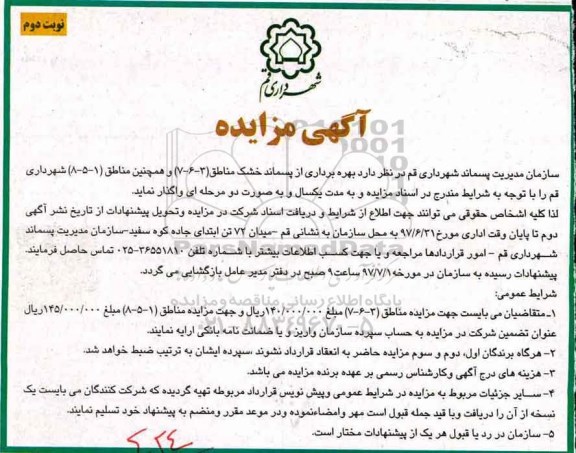 نوبت دوم
شهرداری قم
آگهی مزایده
سازمان مدیریت پسماند شهرداری قم در نظر دارد بهره برداری از پسماند خشک مناطق(۳-۶-۷) و همچنین مناطق (۱-۵-۸) شهرداری
قم را با توجه به شرایط مندرج در اسناد مزایده و به مدت یکسال و به صورت دو مرحله ای واگذار نماید.
لذا کلیه اشخاص حقوقی می توانند جهت اطلاع از شرایط و دریافت اسناد شرکت در مزایده وتحویل پیشنهادات از تاریخ نشر آگهی
دوم تا پایان وقت اداری مورخ۹۷/۶/۳۱ به محل سازمان به نشانی قم -میدان ۷۲ تن ابتدای جاده کوه سفید-سازمان مدیریت پسماند
شهرداری قم - امور قراردادها مراجعه و یا جهت کسب اطلاعات بیشتر با شماره تلفن ۳۶۵۵۱۸۱۰-۰۲۵ تماس حاصل فرمایند.
پیشنهادات رسیده به سازمان در مورخه۹۷/۷/۱ ساعت۹ صبح در دفتر مدیر عامل بازگشایی می گردد.
شرایط عمومی:
۱-متقاضیان می بایست جهت مزایده مناطق (۳-۶-۷) مبلغ ۱۴۰/۰۰۰/۰۰۰ریال و جهت مزایده مناطق (۱-۵-۸) مبلغ ۱۴۵/۰۰۰/۰۰۰ریال
عنوان تضمین شرکت در مزایده به حساب سپرده سازمان واریز و یا ضمانت نامه بانکی ارایه نمایند.
۲- هرگاه برندگان اول، دوم و سوم مزایده حاضر به انعقاد قرارداد نشوند ،سپرده ایشان به ترتیب ضبط خواهد شد.
۳- هزینه های درج آگهی وکارشناس رسمی بر عهده برنده مزایده می باشد.
۴- سایر جزئیات مربوط به مزایده در شرایط عمومی وپیش نویس قرارداد مربوطه تهیه گردیده که شرکت کنندگان می بایست یک
نسخه از آن را دریافت وبا قید جمله قبول است مهر وامضاءنموده ودر موعد مقرر ومنضم به پیشنهاد خود تسلیم نمایند.
۵- سازمان در رد یا قبول هر یک از پیشنهادات مختار است.
پایگاه اطلاع رسانی مناقصه و مزایده
۰۲۱-۸۸۳۴۹۶۷۰-۵